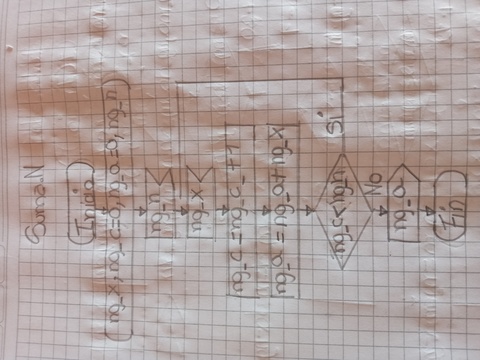 Suma.N
Inicio
(ng_x, ng_c=0, ng_a=0, ng_n)
ng_n
ng_x
ng_c = ng_c_+1
ng_a = ng_a+ng_x
ng_c<ng_n
Si
No
ng_a
Fin